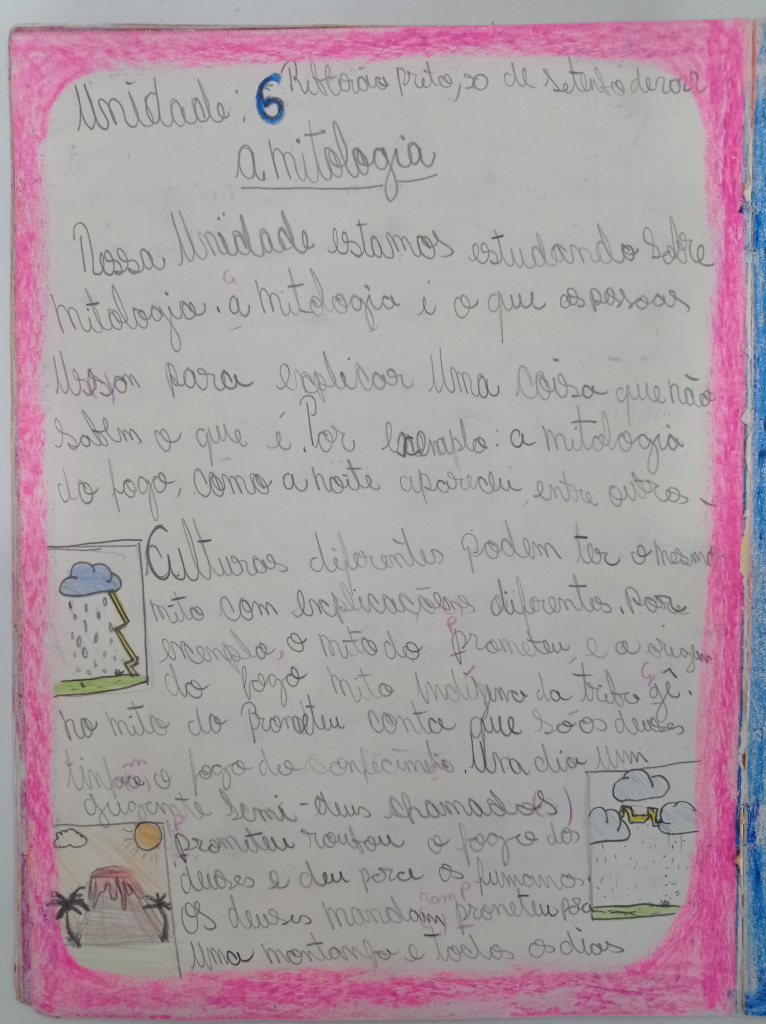 Unidade: 6 Ribeirão preto, 20 de setenbo de 2022
a mitologia
Nossa Unidade estamos estudando sobre
mitologia. a mitologia é o que as pasoas
Usson para explicar Uma coisa que não
sabem o que é. Por exemplo: a mitologia
do fogo, como a noite apareceu, entre outros.
Culturas diferentes podem ter o mesmo
mito com explicações diferentes. por
exemplo, o mito do prometeu, e a origem
do fogo mito indígena da tribo gê.
no mito do Prometeu conta que só os deuses
tinham o fogo do conhecimento. Um dia um
gugante semi-deus chamado
prometeu roubou o fogo dos
deuses e deu para os humanos.
Os deuses mandaram prometeu pra
Uma montanha e todos os dias